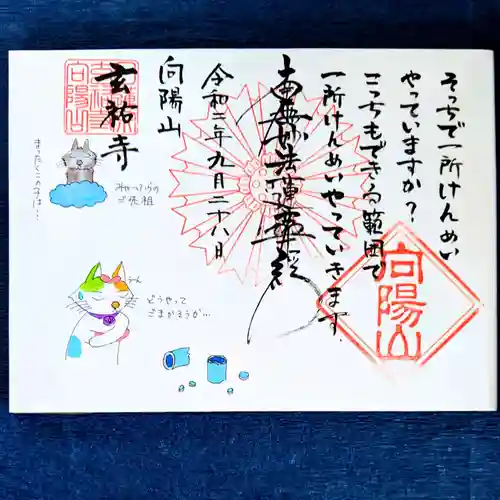 そっちで一所けんめい
やっていますか?
こっちもできる範囲で
一所けんめいやっていきます.
南無妙法蓮華経
令和二年九月二十八日
向陽山
玄祐寺
向陽山
向陽山
みゃーからの
ご先祖
まったくこの子は…
うーん
どうやって
ごまかそうか…